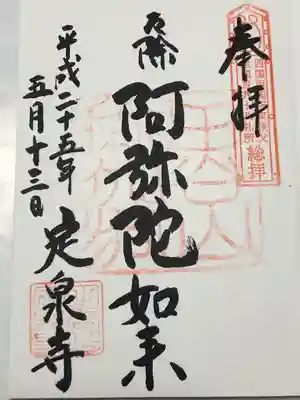 奉拝
阿弥陀如来
平成二十五年
五月十三日
定泉寺
総拝